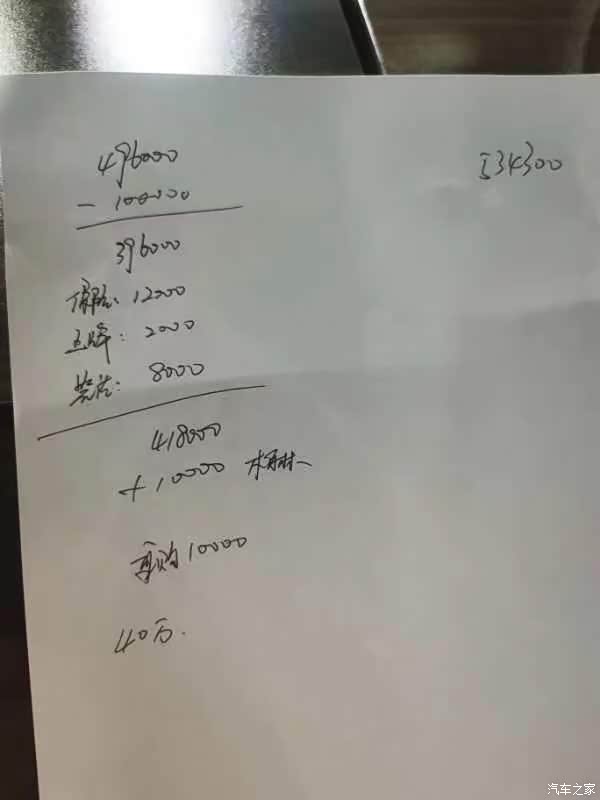 496000
534300
- 100000
396000
保险: 12000
上牌: 2000
装潢: 8000
418000
+10000
再购10000
40万.
汽车之家